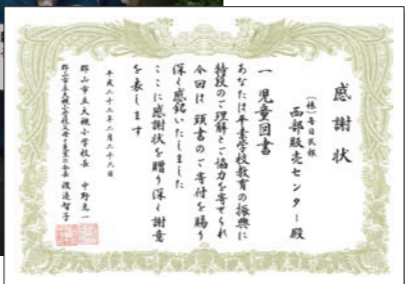 感謝状
(株)毎日民報
西部販売センター殿
一 児童図書
あなたは平素学校教育の振興に
特段のご理解とご協力を寄せられ
今回は頭書のご寄付を賜り
深く感銘いたしました
ここに感謝状を贈り深く謝意
を表します
平成二十二年二月二十六日
郡山市立大槻小学校長 中野
郡山市立大槻小学校父母と 会長 渡辺智子